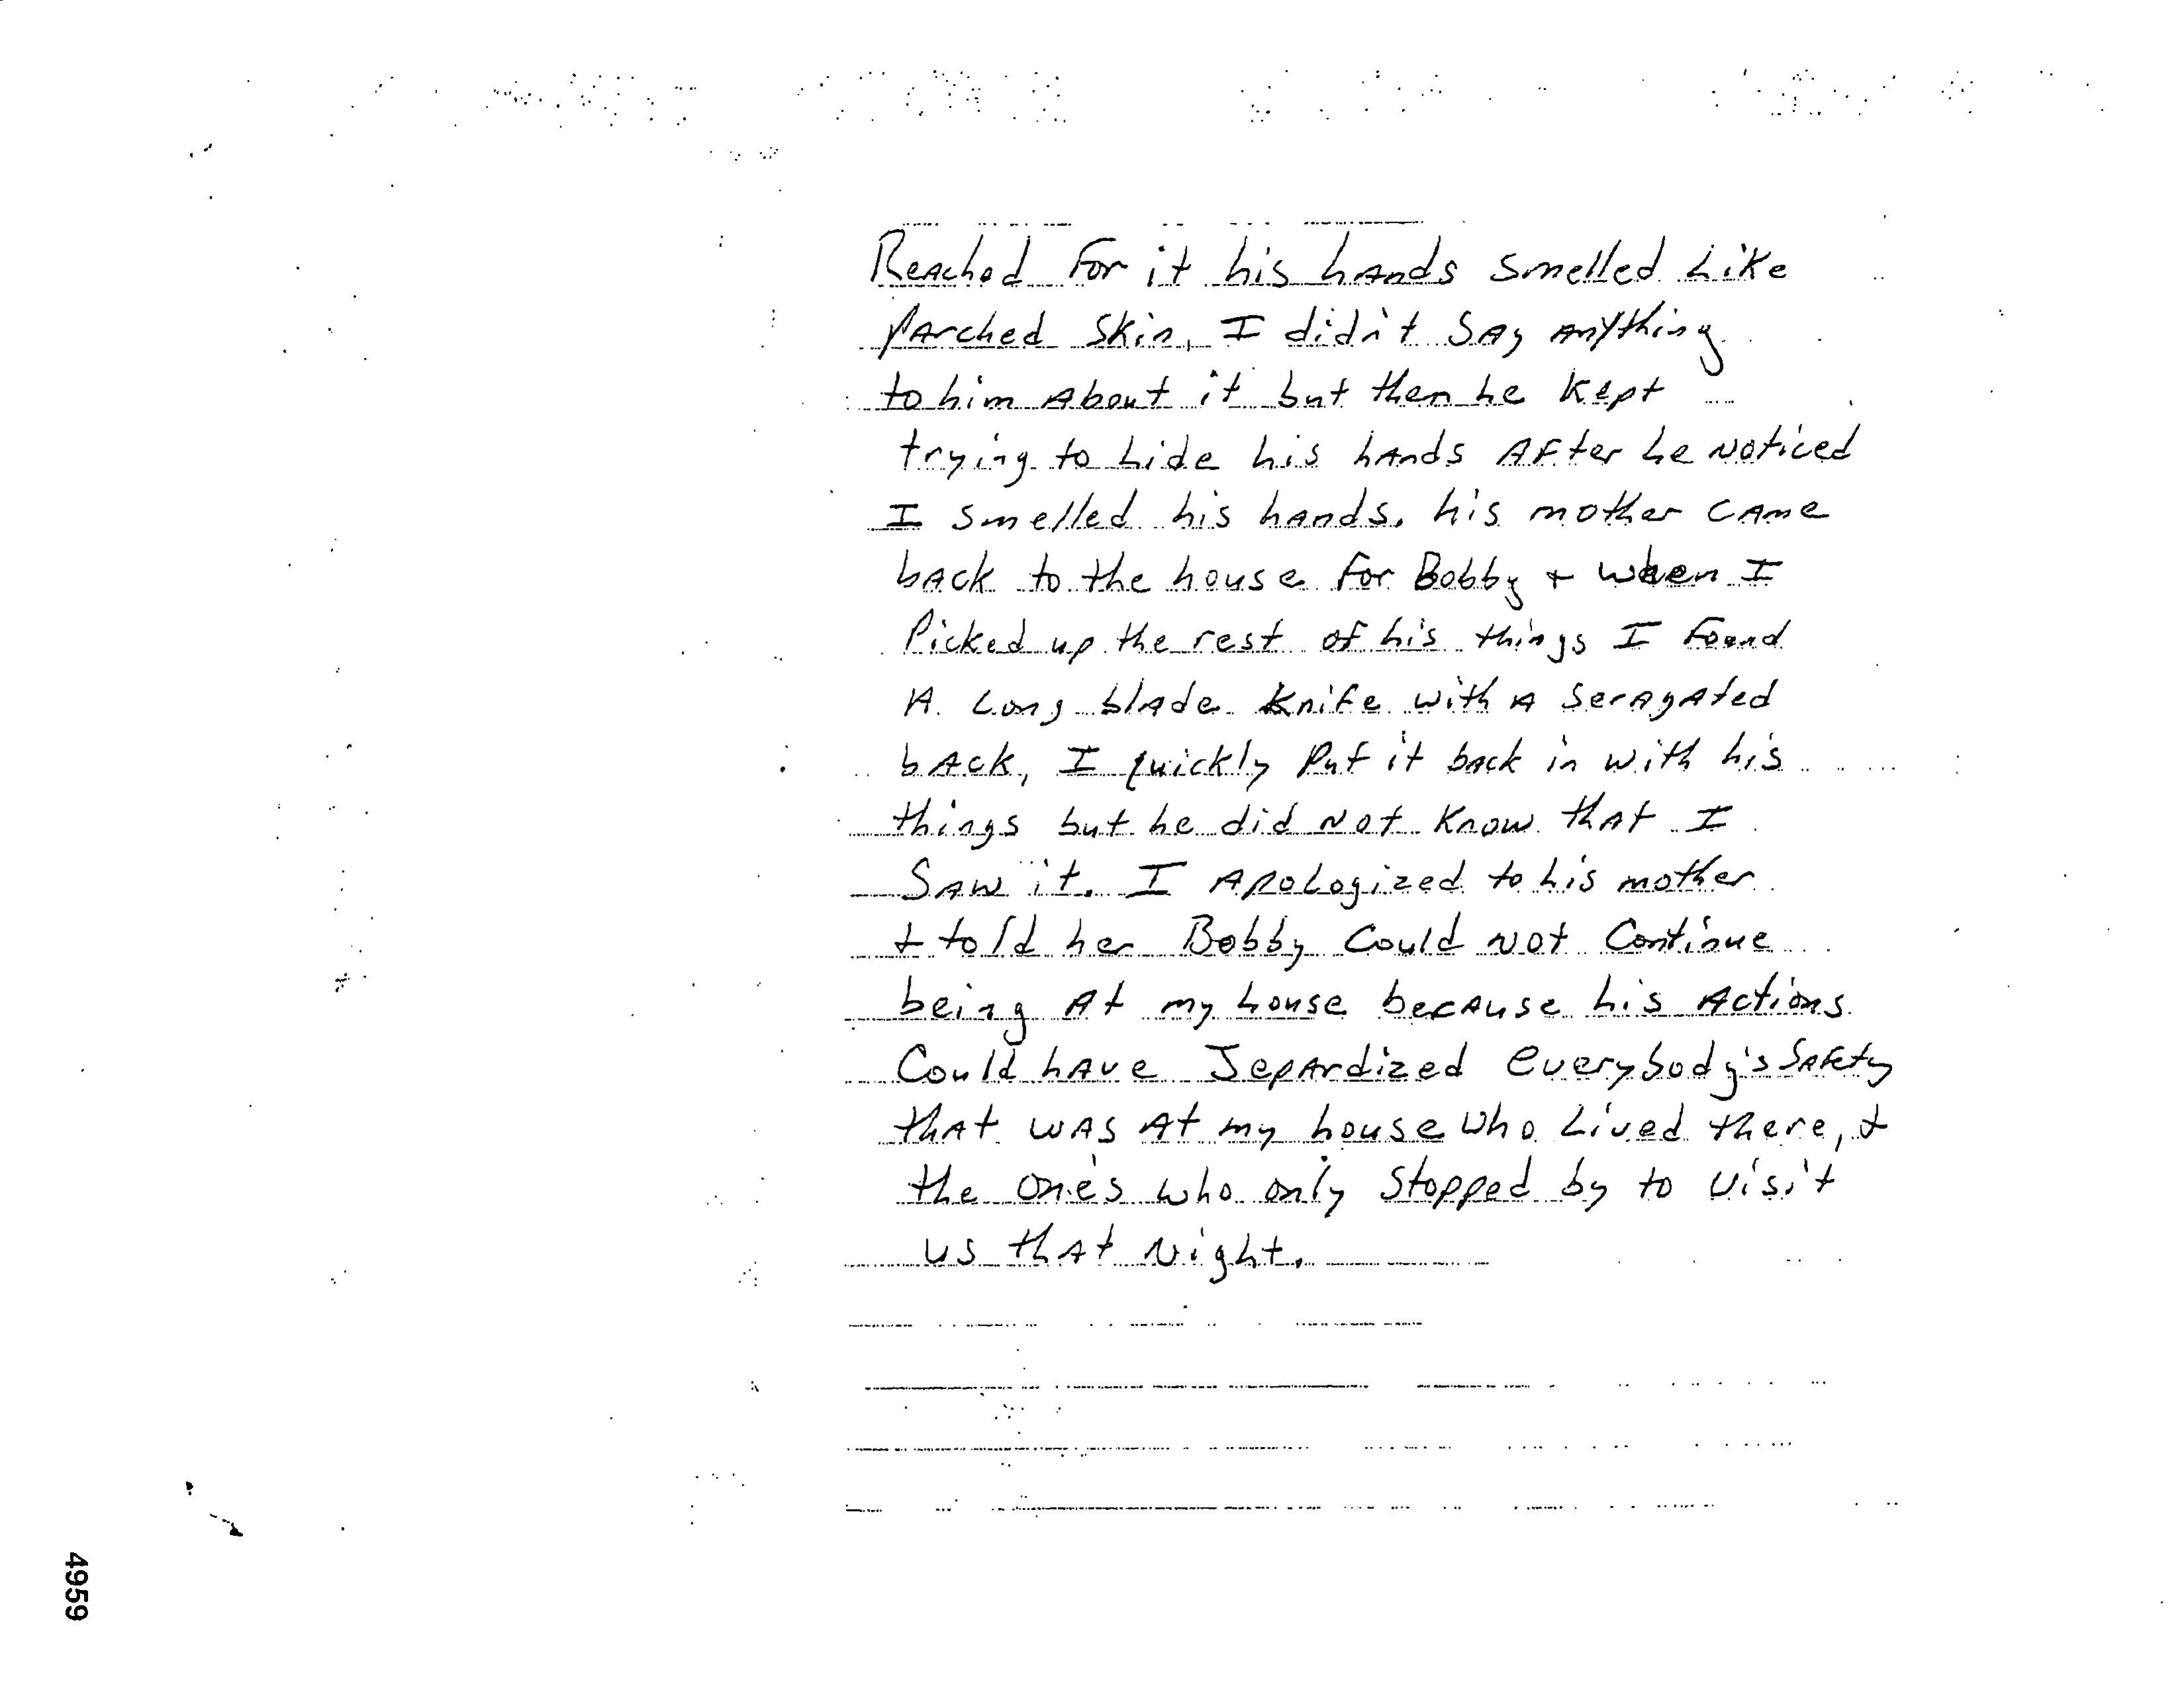 Reached For it his hands smelled Like
Parched Skin, I didn't Say anything
to him About it but then he Kept
trying to hide his hands After he Noticed
I smelled his hands. his mother came
back to the house for Bobby + when I
Picked up the rest of his things I Found
A Long blade Knife with A Seragated
back, I quickly Put it back in with his
things but he did Not Know that I
Saw it. I Apologized to his mother
+ told her Bobby Could Not Continue
being At my house because his Actions
Could have Jepardized everybody's Safety
that was At my house who Lived there, +
the one's who only Stopped by to Visit
us that Night.
4959